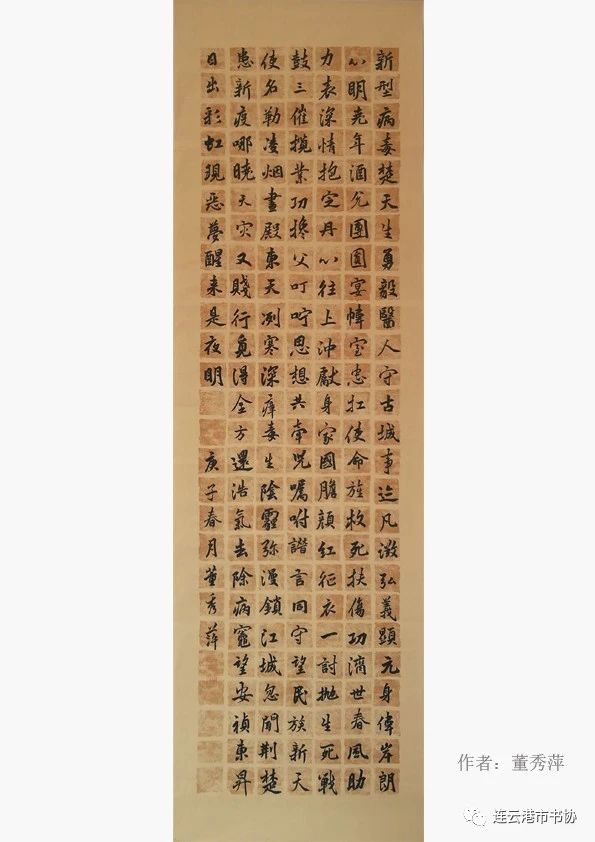 新型病毒楚天生勇毅醫人守古城事迹凡微弘義顯元身偉岸朗
心明堯年酒兌團圓宴幃室忠扛使命旌救死扶傷功濟世春風助
力表深情抱定丹心往上沖獻身家國膽顏紅征衣一討拋生死戰
鼓三催攬業功攙父叮嚀思想共牽兒囑咐諧言同守望民族新天
使名勒凌烟畫殿東天冽寒深瘴毒生陰霾弥漫鎖江城忽聞荆楚
患新疫哪曉天灾又賤行覓得全方還浩氣去除病竈望安禎東昇
日出彩虹現惡夢醒来是夜明 庚子春月董秀萍
作者：董秀萍
连云港市书协